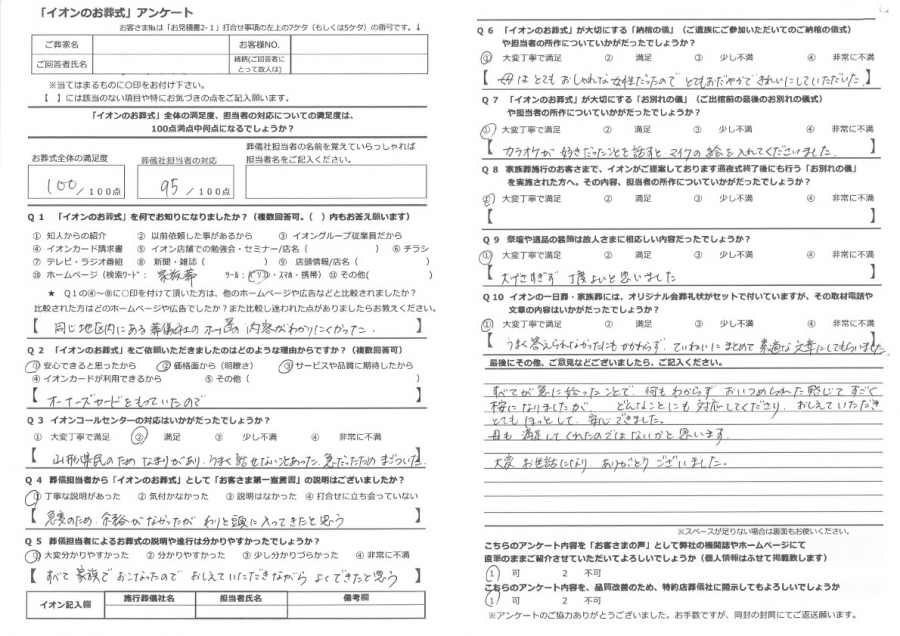 「イオンのお葬式」アンケート
お客さま№は「お見積書2-1」打合せ事項の左上の7ケタ（もしくは5ケタ）の番号です。↓
ご葬家名
お客様NO.
ご回答者氏名
続柄(ご回答者にとって故人は)
※当てはまるものに〇印をお付け下さい。
【 】には該当のない項目や特にお気づきの点をご記入願います。
「イオンのお葬式」全体の満足度、担当者の対応についての満足度は、
100点満点中何点になるでしょうか？
お葬式全体の満足度
葬儀社担当者の対応
葬儀社担当者の名前を覚えていらっしゃれば
担当者名をご記入ください。
100 /100点
95 /100点
Q1 「イオンのお葬式」を何でお知りになりましたか？（複数回答可。（ ）内もお答え願います）
① 知人からの紹介 ② 以前依頼した事があるから ③ イオングループ従業員だから
④ イオンカード請求書 ⑤ イオン店舗での勉強会・セミナー/店名（ ） ⑥ チラシ
⑦ テレビ・ラジオ番組 ⑧ 新聞・雑誌（ ） ⑨ 店頭情報/店名（ ）
⑩ ホームページ（検索ワード： 家族葬 ツール：パソコン・スマホ・携帯） ⑪ その他( )
★ Q1の④～⑧に〇印を付けて頂いた方は、他のホームページや広告などと比較されましたか？
比較された方はどのホームページや広告でしたか？また比較し迷われた点がありましたらお教えください。
【 同じ地区内にある葬儀社の の内容がわかりにくかった. 】
Q2 「イオンのお葬式」をご依頼いただきましたのはどのような理由からですか？（複数回答可）
① 安心できると思ったから ② 価格面から（明瞭さ） ③ サービスや品質に期待したから
④ イオンカードが利用できるから ⑤ その他（ ）
【 オーナーズカードをもっていたので 】
Q3 イオンコールセンターの対応はいかがだったでしょうか？
① 大変丁寧で満足 ② 満足 ③ 少し不満 ④ 非常に不満
【 山形県民のため なまりがあり、うまく話せないとあった. 急だったため まごついた. 】
Q4 葬儀担当者から「イオンのお葬式」として「お客さま第一宣言書」の説明はございましたか？
① 丁寧な説明があった ② 気付かなかった ③ 説明はなかった ④ 打合せに立ち会っていない
【 急変のため. 余裕がなかったが わりと頭に入ってきたと思う 】
Q5 葬儀担当者によるお葬式の説明や進行は分かりやすかったでしょうか？
① 大変分かりやすかった ② 分かりやすかった ③ 少し分かりづらかった ④ 非常に不満
【 すべて家族でおこなったので おしえていただきながら よくできたと思う 】
イオン記入欄
施行葬儀社名
担当者氏名
備考欄
Q6 「イオンのお葬式」が大切にする「納棺の儀」（ご遺族にご参加いただいてのご納棺の儀式）
や担当者の所作についていかがだったでしょうか？
① 大変丁寧で満足 ② 満足 ③ 少し不満 ④ 非常に不満
【 母は とても おしゃれな女性だったので とてもおだやかできれいにしていただいた. 】
Q7 「イオンのお葬式」が大切にする「お別れの儀」（ご出棺前の最後のお別れの儀式）
や担当者の所作についていかがだったでしょうか？
① 大変丁寧で満足 ② 満足 ③ 少し不満 ④ 非常に不満
【 カラオケが好きだったことを話すと マイクの絵を入れてくださいました. 】
Q8 家族葬施行のお客さまで、イオンがご提案しております通夜式終了後にも行う「お別れの儀」
を実施された方へ。その内容、担当者の所作についていかがでしたか？
① 大変丁寧で満足 ② 満足 ③ 少し不満 ④ 非常に不満
【 】
Q9 祭壇や遺品の装飾は故人さまに相応しい内容だったでしょうか？
① 大変丁寧で満足 ② 満足 ③ 少し不満 ④ 非常に不満
【 大げさすぎず 丁度よいと思いました 】
Q10 イオンの一日葬・家族葬には、オリジナル会葬礼状がセットで付いていますが、その取材電話や
文章の内容はいかがだったでしょうか？
① 大変丁寧で満足 ② 満足 ③ 少し不満 ④ 非常に不満
【 うまく答えられなかったにもかかわらず. ていねいにまとめて 素適な文章にしてもらいました. 】
最後にその他、ご意見などございましたら、ご記入ください。
すべてが急に始ったことで. 何もわからず おいつめられた感じで すごく
様になりましたが どんなことにも対応してくださり、おしえていただき
とてもほっとして. 安心できました.
母も満足してくれたのではないかと思います.
大変 お世話になり、ありがとう ございました.
※スペースが足りない場合は裏面もお使いください。
こちらのアンケート内容を「お客さまの声」として弊社の機関誌やホームページにて
直筆のままご紹介させていただいてよろしいでしょうか（個人情報はふせて掲載致します）
1 可 2 不可
こちらのアンケート内容を、品質改善のため、特約店葬儀社に開示してもよろしいでしょうか
1 可 2 不可
※アンケートのご協力ありがとうございました。お手数ですが、同封の封筒にてご返送願います。